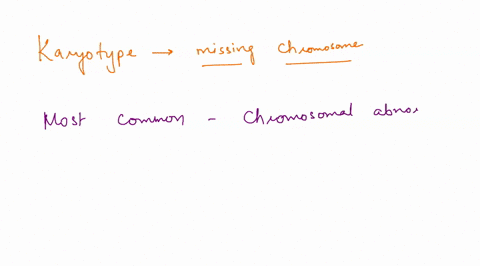 Karyotype → missing chromosome
Most common - Chromosomal abno